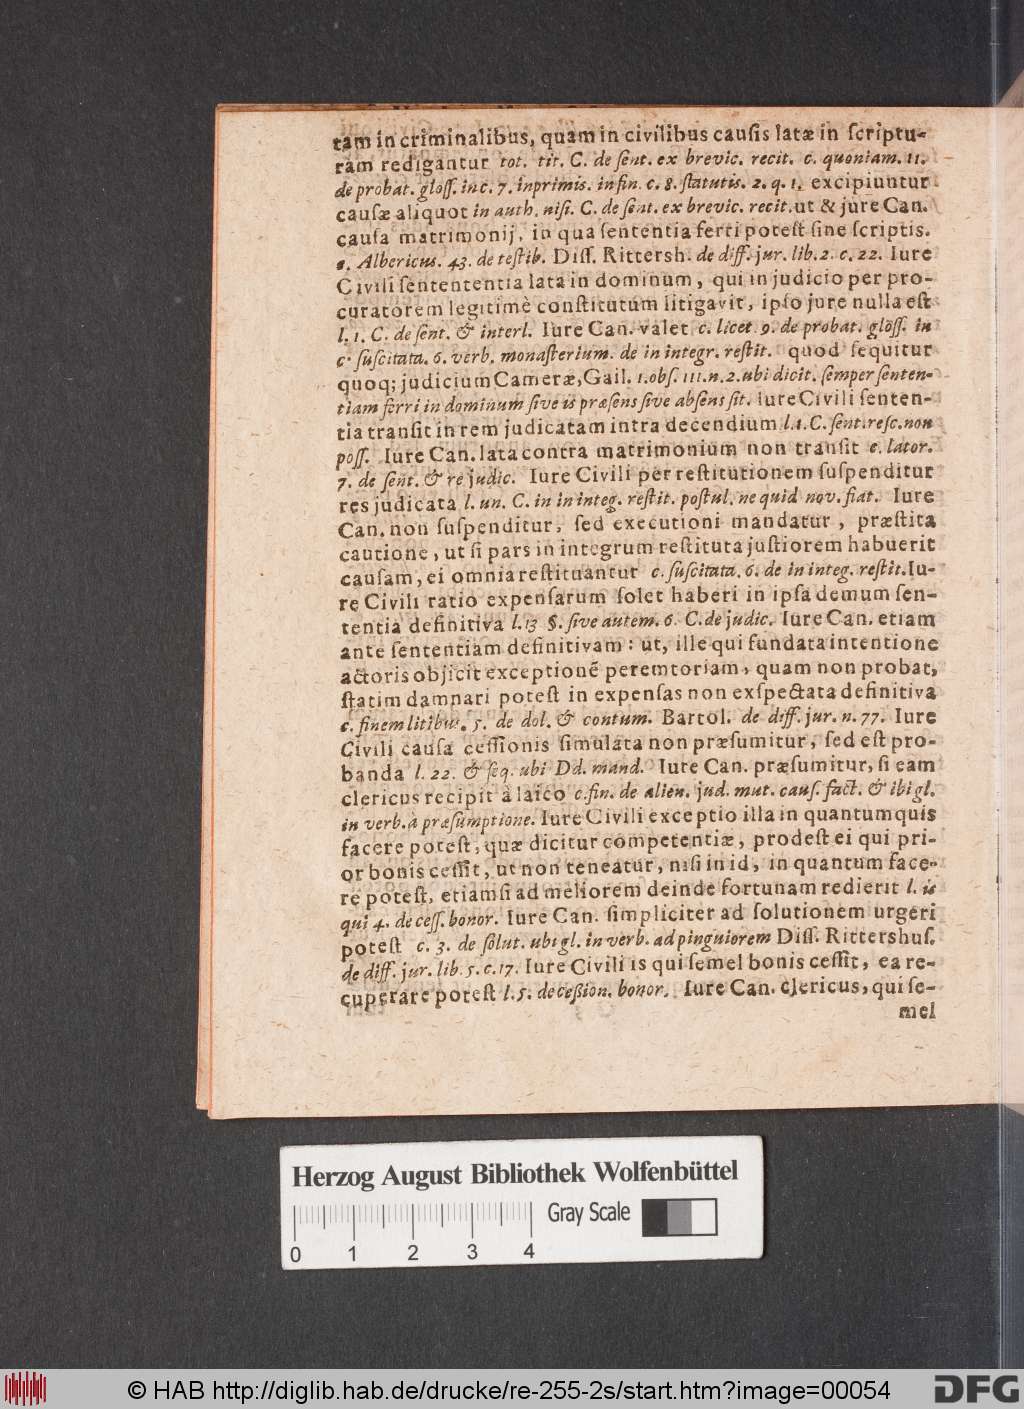 tam in criminalibus, quam in civilibus causis latæ in scriptu-
ram redigantur tot. tit. C. de sent. ex brevic. recit. c. quoniam. 11.
de probat. gloss. in c. 7. inprimis. in fin. c. 8. statutis. 2. q. 1. excipiuntur
causæ aliquot in auth. nisi. C. de sent. ex brevic. recit. ut & jure Can.
causa matrimonij, in qua sententia ferri potest sine scriptis.
s. Albericus. 43. de testib. Diss. Rittersh. de diff. jur. lib. 2. c. 22. Iure
Civili sentententia lata in dominum, qui in judicio per pro-
curatorem legitimè constitutum litigavit, ipso jure nulla est
l. 1. C. de sent. & interl. Iure Can. valet c. licet 9. de probat. gloss. in
c. suscitata. 6. verb. monasterium. de in integr. restit. quod sequitur
quoq; judicium Cameræ, Gail. 1. obs. 111. n. 2. ubi dicit. semper senten-
tiam ferri in dominum sive is præsens sive absens sit. Iure Civili senten-
tia transit in rem judicatam intra decendium l. 1. C. sent. resc. non
poss. Iure Can. lata contra matrimonium non transit c. lator.
7. de sent. & re judic. Iure Civili per restitutionem suspenditur
res judicata l. un. C. in in integ. restit. postul. ne quid nov. fiat. Iure
Can. non suspenditur, sed executioni mandatur, præstita
cautione, ut si pars in integrum restituta justiorem habuerit
causam, ei omnia restituantur c. suscitata. 6. de in integ. restit. Iu-
re Civili ratio expensarum solet haberi in ipsa demum sen-
tentia definitiva l. 13 §. sive autem. 6. C. de judic. Iure Can. etiam
ante sententiam definitivam: ut, ille qui fundata intentione
actoris objicit exceptionẽ peremtoriam, quam non probat,
statim damnari potest in expensas non exspectata definitiva
c. finem litibus. 5. de dol. & contum. Bartol. de diff. jur. n. 77. Iure
Civili causa cessionis simulata non præsumitur, sed est pro-
banda l. 22. & seq. ubi Dd. mand. Iure Can. præsumitur, si eam
clericus recipit à laico c. fin. de alien. jud. mut. caus. fact. & ibi gl.
in verb. à præsumptione. Iure Civili exceptio illa in quantum quis
facere potest, quæ dicitur competentiæ, prodest ei qui pri-
or bonis cessit, ut non teneatur, nisi in id, in quantum face-
re potest, etiamsi ad meliorem deinde fortunam redierit l. is
qui 4. de cess. bonor. Iure Can. simpliciter ad solutionem urgeri
potest c. 3. de solut. ubi gl. in verb. ad pinguiorem Diss. Rittershus.
de diff. jur. lib. 5. c. 17. Iure Civili is qui semel bonis cessit, ea re-
cuperare potest l. 5. de cession. bonor. Iure Can. clericus, qui se-
mel
Herzog August Bibliothek Wolfenbüttel
Gray Scale
0 1 2 3 4
© HAB http://diglib.hab.de/drucke/re-255-2s/start.htm?image=00054
DFG